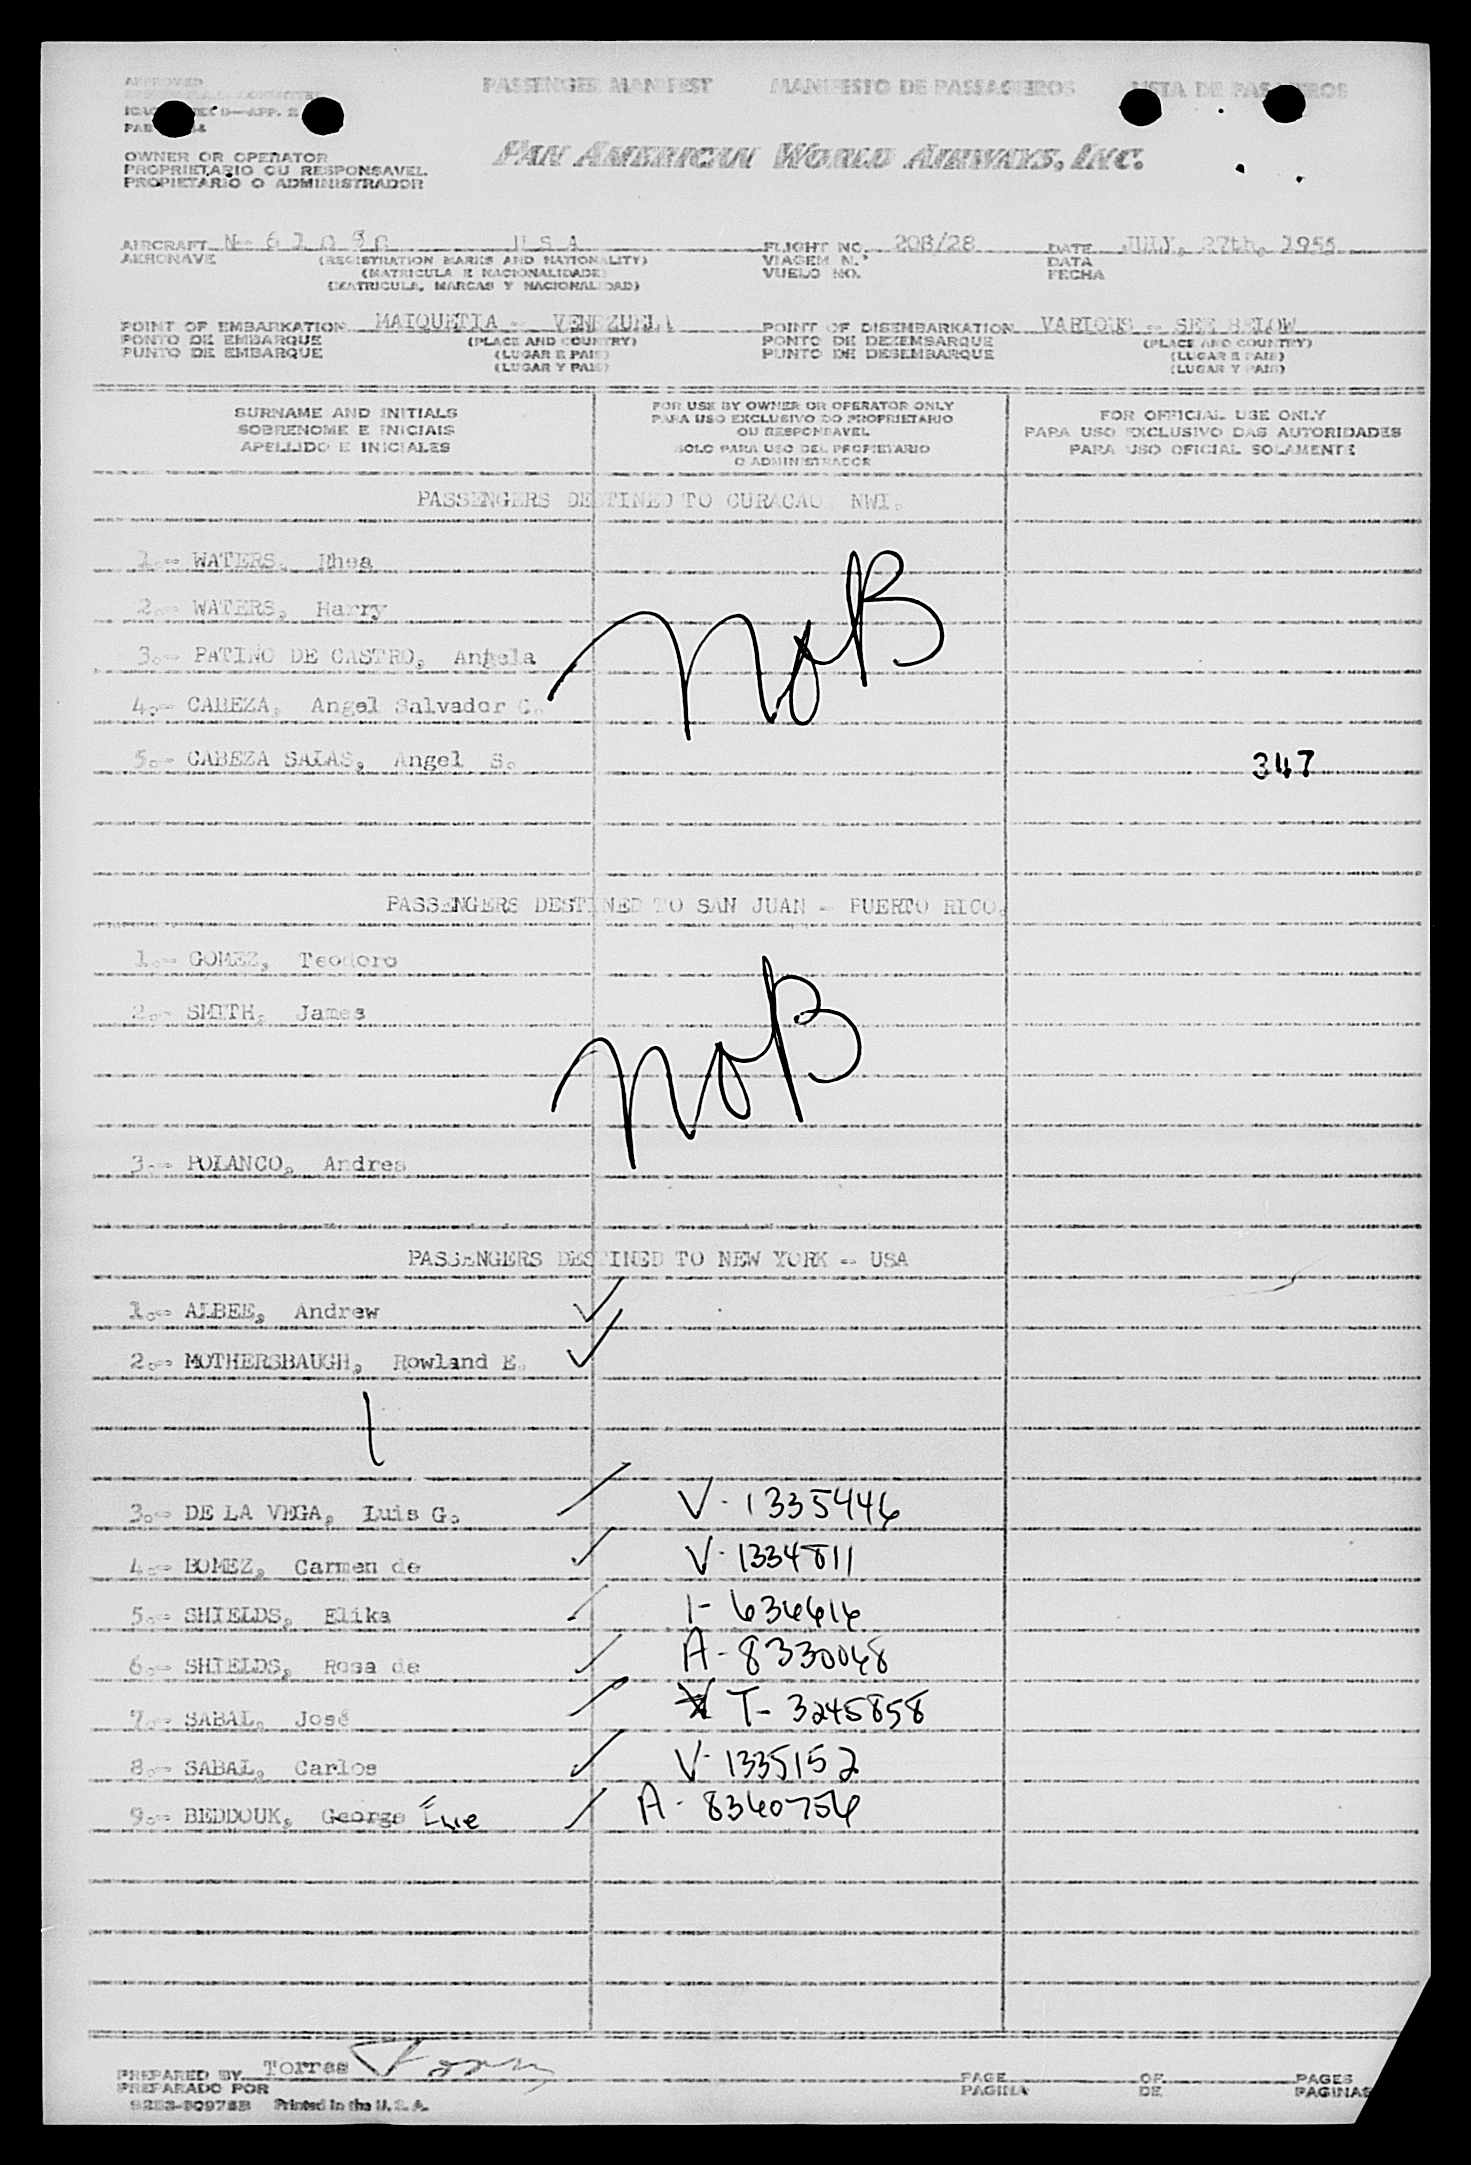 APPROVED
PASSENGER MANIFEST MANIFESTO DE PASSAGEIROS LISTA DE PASAJEROS
OWNER OR OPERATOR
PROPRIETARIO OU RESPONSAVEL
PROPIETARIO O ADMINISTRADOR
PAN AMERICAN WORLD AIRWAYS, INC.
AIRCRAFT N- 6109 U S A FLIGHT NO. 208/28 DATE JULY, 27th, 1955
AERONAVE (REGISTRATION MARKS AND NATIONALITY) VIAGEM N.º DATA
(MATRICULA E NACIONALIDADE) VUELO NO. FECHA
(MATRICULA, MARCAS Y NACIONALIDAD)
POINT OF EMBARKATION MAIQUETIA - VENEZUELA POINT OF DISEMBARKATION VARIOUS - SEE BELOW
PONTO DE EMBARQUE (PLACE AND COUNTRY) PONTO DE DEZEMBARQUE (PLACE AND COUNTRY)
PUNTO DE EMBARQUE (LUGAR E PAIS) PUNTO DE DESEMBARQUE (LUGAR E PAIS)
(LUGAR Y PAIS) (LUGAR Y PAIS)
SURNAME AND INITIALS FOR USE BY OWNER OR OPERATOR ONLY FOR OFFICIAL USE ONLY
SOBRENOME E INICIAIS PARA USO EXCLUSIVO DO PROPRIETARIO PARA USO EXCLUSIVO DAS AUTORIDADES
OU RESPONSAVEL
APELLIDO E INICIALES SOLO PARA USO DEL PROPIETARIO PARA USO OFICIAL SOLAMENTE
O ADMINISTRADOR
PASSENGERS DESTINED TO CURACAO, NWI.
1.- WATERS, Rhea
2.- WATERS, Harry
3.- PATINO DE CASTRO, Angela
NOB
4.- CABEZA, Angel Salvador C.
5.- CABEZA SALAS, Angel S. 347
PASSENGERS DESTINED TO SAN JUAN - PUERTO RICO.
1.- GOMEZ, Teodoro
2.- SMITH, James
NOB
3.- POLANCO, Andres
PASSENGERS DESTINED TO NEW YORK -- USA
1.- ALBEE, Andrew
2.- MOTHERSBAUGH, Rowland E.
3.- DE LA VEGA, Luis G. V-1335446
4.- BOMEZ, Carmen de V-1334811
5.- SHIELDS, Elika 1-634616
6.- SHIELDS, Rosa de A-8330048
7.- SABAL, José T-3245858
8.- SABAL, Carlos V-1335152
9.- BEDDOUK, George A-8340754
PREPARED BY Torres PAGE OF PAGES
PREPARADO POR PAGINA DE PAGINAS
Printed in the U. S. A.